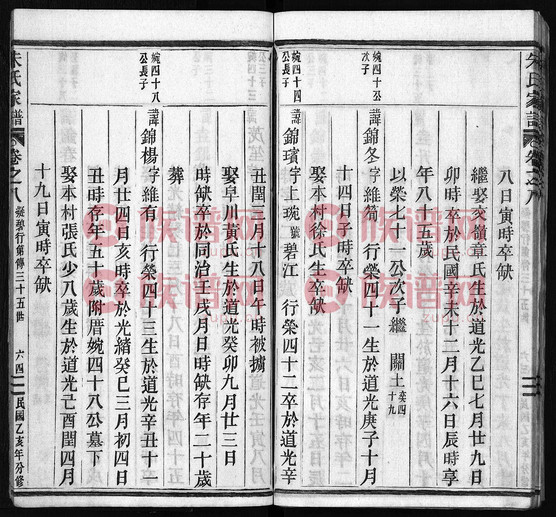 八日寅時卒缺
繼娶亥嶺章氏生於道光乙巳七月廿九日
卯時卒於民國辛未十二月十六日辰時享
年八十五歲
以榮七十一公次子繼 關土 奕四十九
婉四十公次子 諱錦冬 字維筍 行榮四十一生於道光庚子十月
十四日子時卒缺
娶本村徐氏生卒缺
婉四十四公長子 諱錦璸 字上琬 號碧江 行榮四十二卒於道光辛
丑閏三月十八日午時被擄
娶阜川黃氏生於道光癸卯九月廿三日
時缺卒於同治壬戌月日時缺存年二十歲
葬
婉四十八公長子 諱錦楊 字維有 行榮四十三生於道光辛丑十一
月廿四日亥時卒於光緒癸巳三月初四日
丑時存年五十歲附厝婉四十八公墓下
娶本村張氏少八歲生於道光己酉閏四月
十九日寅時卒缺
朱氏家譜 卷之八 凝碧行第傳三十五世 六四 民國乙亥年分修
族谱网